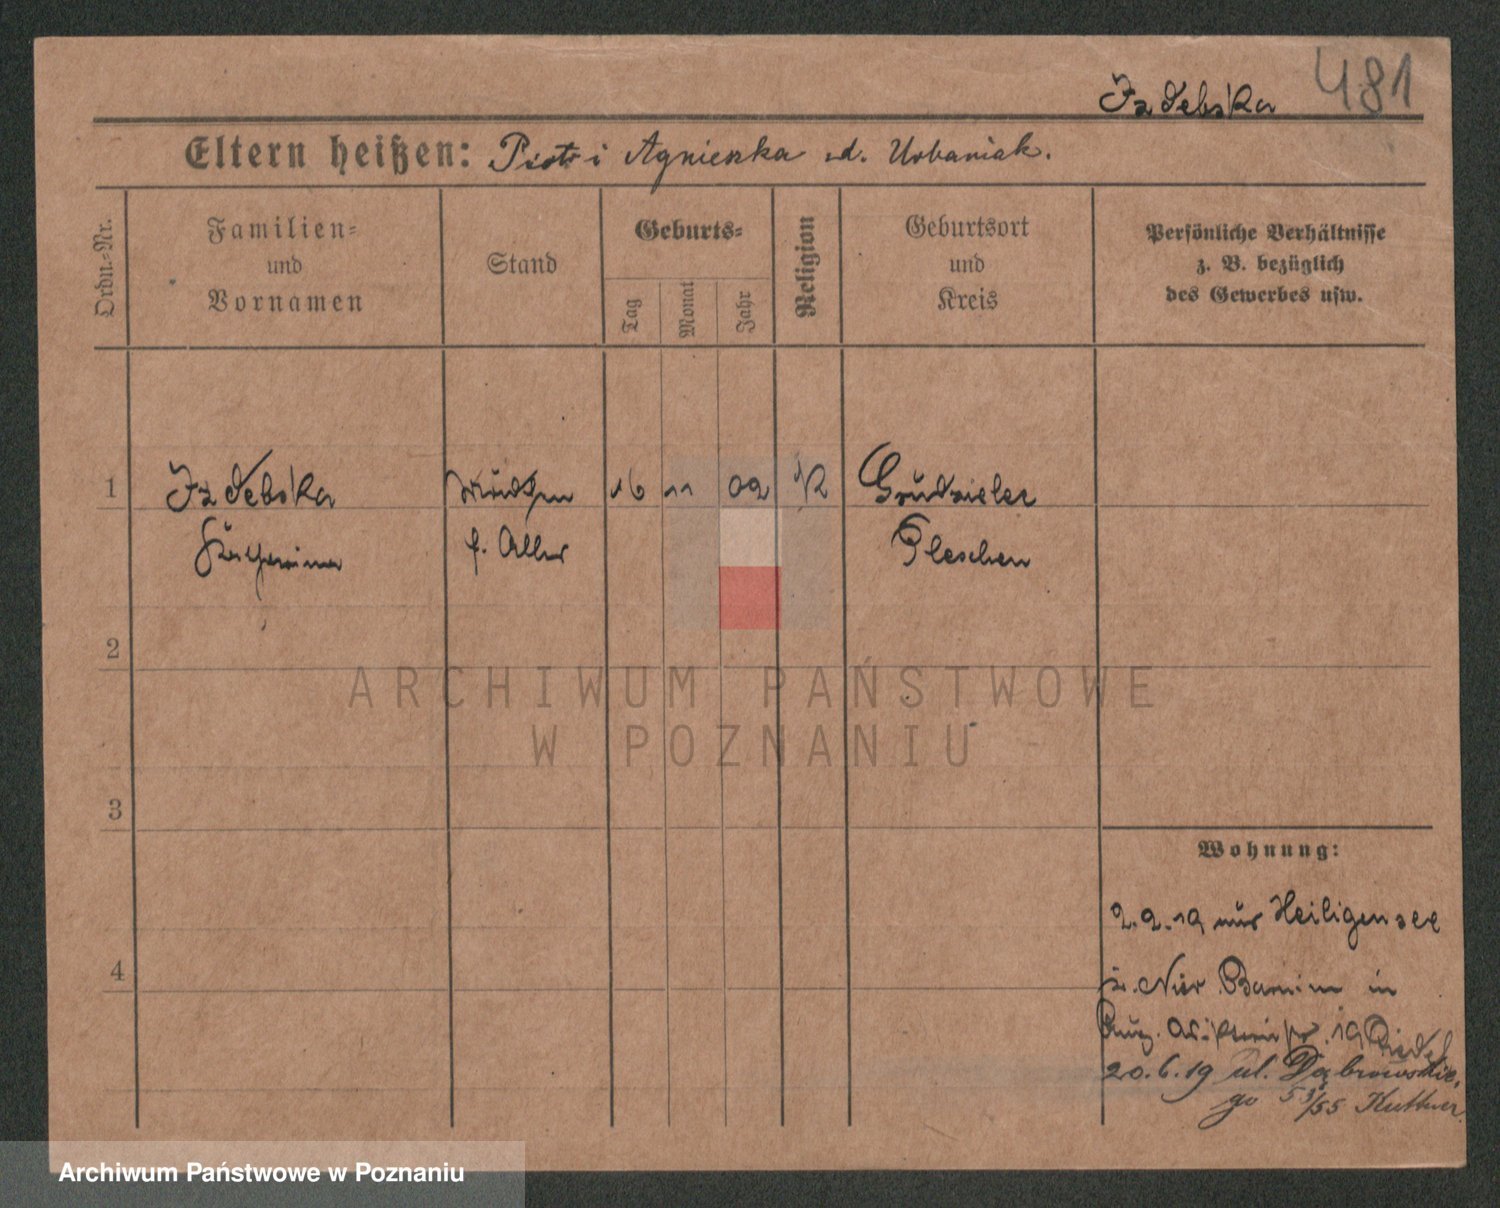 Izdebska 481
Eltern heißen: Piotr i Agnieszka zd. Urbaniak.
Ordn.-Nr.
Familien-
und
Vornamen
Stand
Geburts-
Tag
Monat
Jahr
Religion
Geburtsort
und
Kreis
Persönliche Verhältnisse
z. B. bezüglich
des Gewerbes usw.
1 Izdebska 16 11 02 K
Katharina f. Alles Pleschen
2
3
4
Wohnung:
2.2.19 aus Heiligensee
Kr. Nied. Barnim in
19
20.6.19 ul. Dąbrowskie,
go 53/55 Kuttner
ARCHIWUM PAŃSTWOWE
W POZNANIU
Archiwum Państwowe w Poznaniu